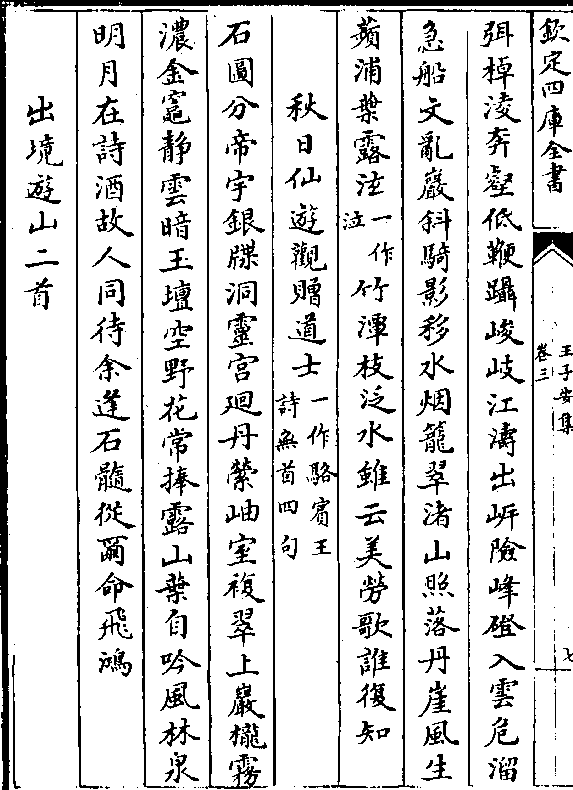 欽定四庫全書
王子安集
卷三
七
弭棹淩奔壑低鞭躡峻岐江濤出岍險峰磴入雲危溜
急船文亂巖斜騎影移水烟籠翠渚山照落丹崖風生
蘋浦葉露泫一作泣竹潭枝泛水雖云美勞歌誰復知
秋日仙遊觀贈道士一作駱賓王詩無首四句
石圖分帝宇銀牒洞靈宫廻丹縈岫室複翠上巖櫳霧
濃金竈静雲暗玉壇空野花常捧露山葉自吟風林泉
明月在詩酒故人同待余逢石髓從爾命飛鴻
出境遊山二首